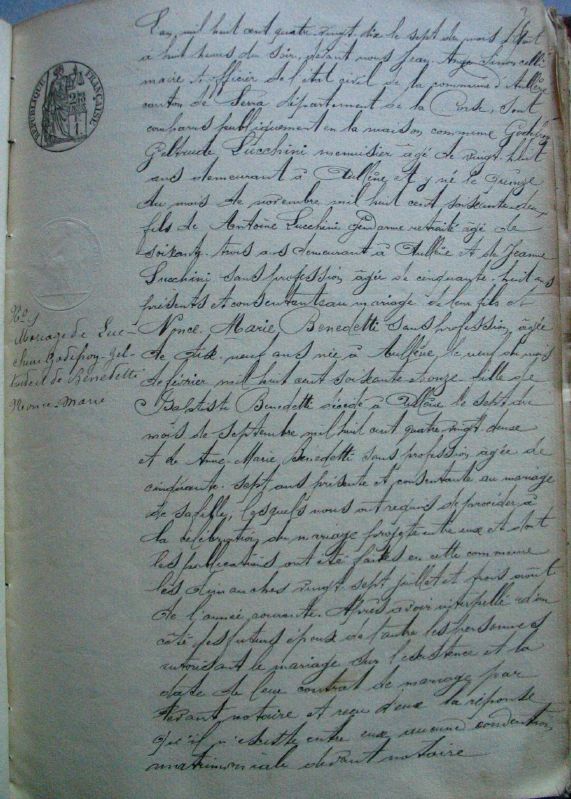 RÉPUBLIQUE FRANÇAISE
L'an mil huit cent quatre vingt dix le sept du mois d'Août
à huit heures du soir, devant nous Jean Ange
maire et officier de l'état civil de la commune d'Aullène
canton de Serra département de la Corse, sont
comparus publiquement en la maison commune Godefroy
Geltrude Lucchini menuisier âgé de vingt huit
ans demeurant à Aullène et y né le quinze
du mois de novembre mil huit cent soixante
fils de Antoine Lucchini gendarme retraité âgé de
soixante trois ans demeurant à Aullène et de Jeanne
Lucchini sans profession âgée de cinquante huit ans
présents et consentants au mariage de leur fils et
Nonce Marie Benedetti sans profession, âgée
de dix-neuf ans née à Aullène le neuf du mois
de février mil huit cent soixante et onze fille de
Baptiste Benedetti décédé à Aullène le sept du
mois de septembre mil huit cent quatre vingt
et de Anne-Marie Benedetti sans profession âgée de
cinquante sept ans présente et consentante au mariage
de sa fille, lesquels nous ont requis de procéder à
la célébration du mariage projeté entre eux et dont
les publications ont été faites en cette commune
les dimanches vingt sept juillet et trois août
de l'année courante. Après avoir interpellé d'un
côté les futurs époux de l'autre les personnes
autorisant le mariage sur l'existence et la
date de leur contrat de mariage par
devant notaire et reçu d'eux la réponse
qu'il n'existe entre eux aucune convention
matrimoniale devant notaire
Mariage de Luc-
chini Godefroy Gel-
trude et de Benedetti
Nonce Marie